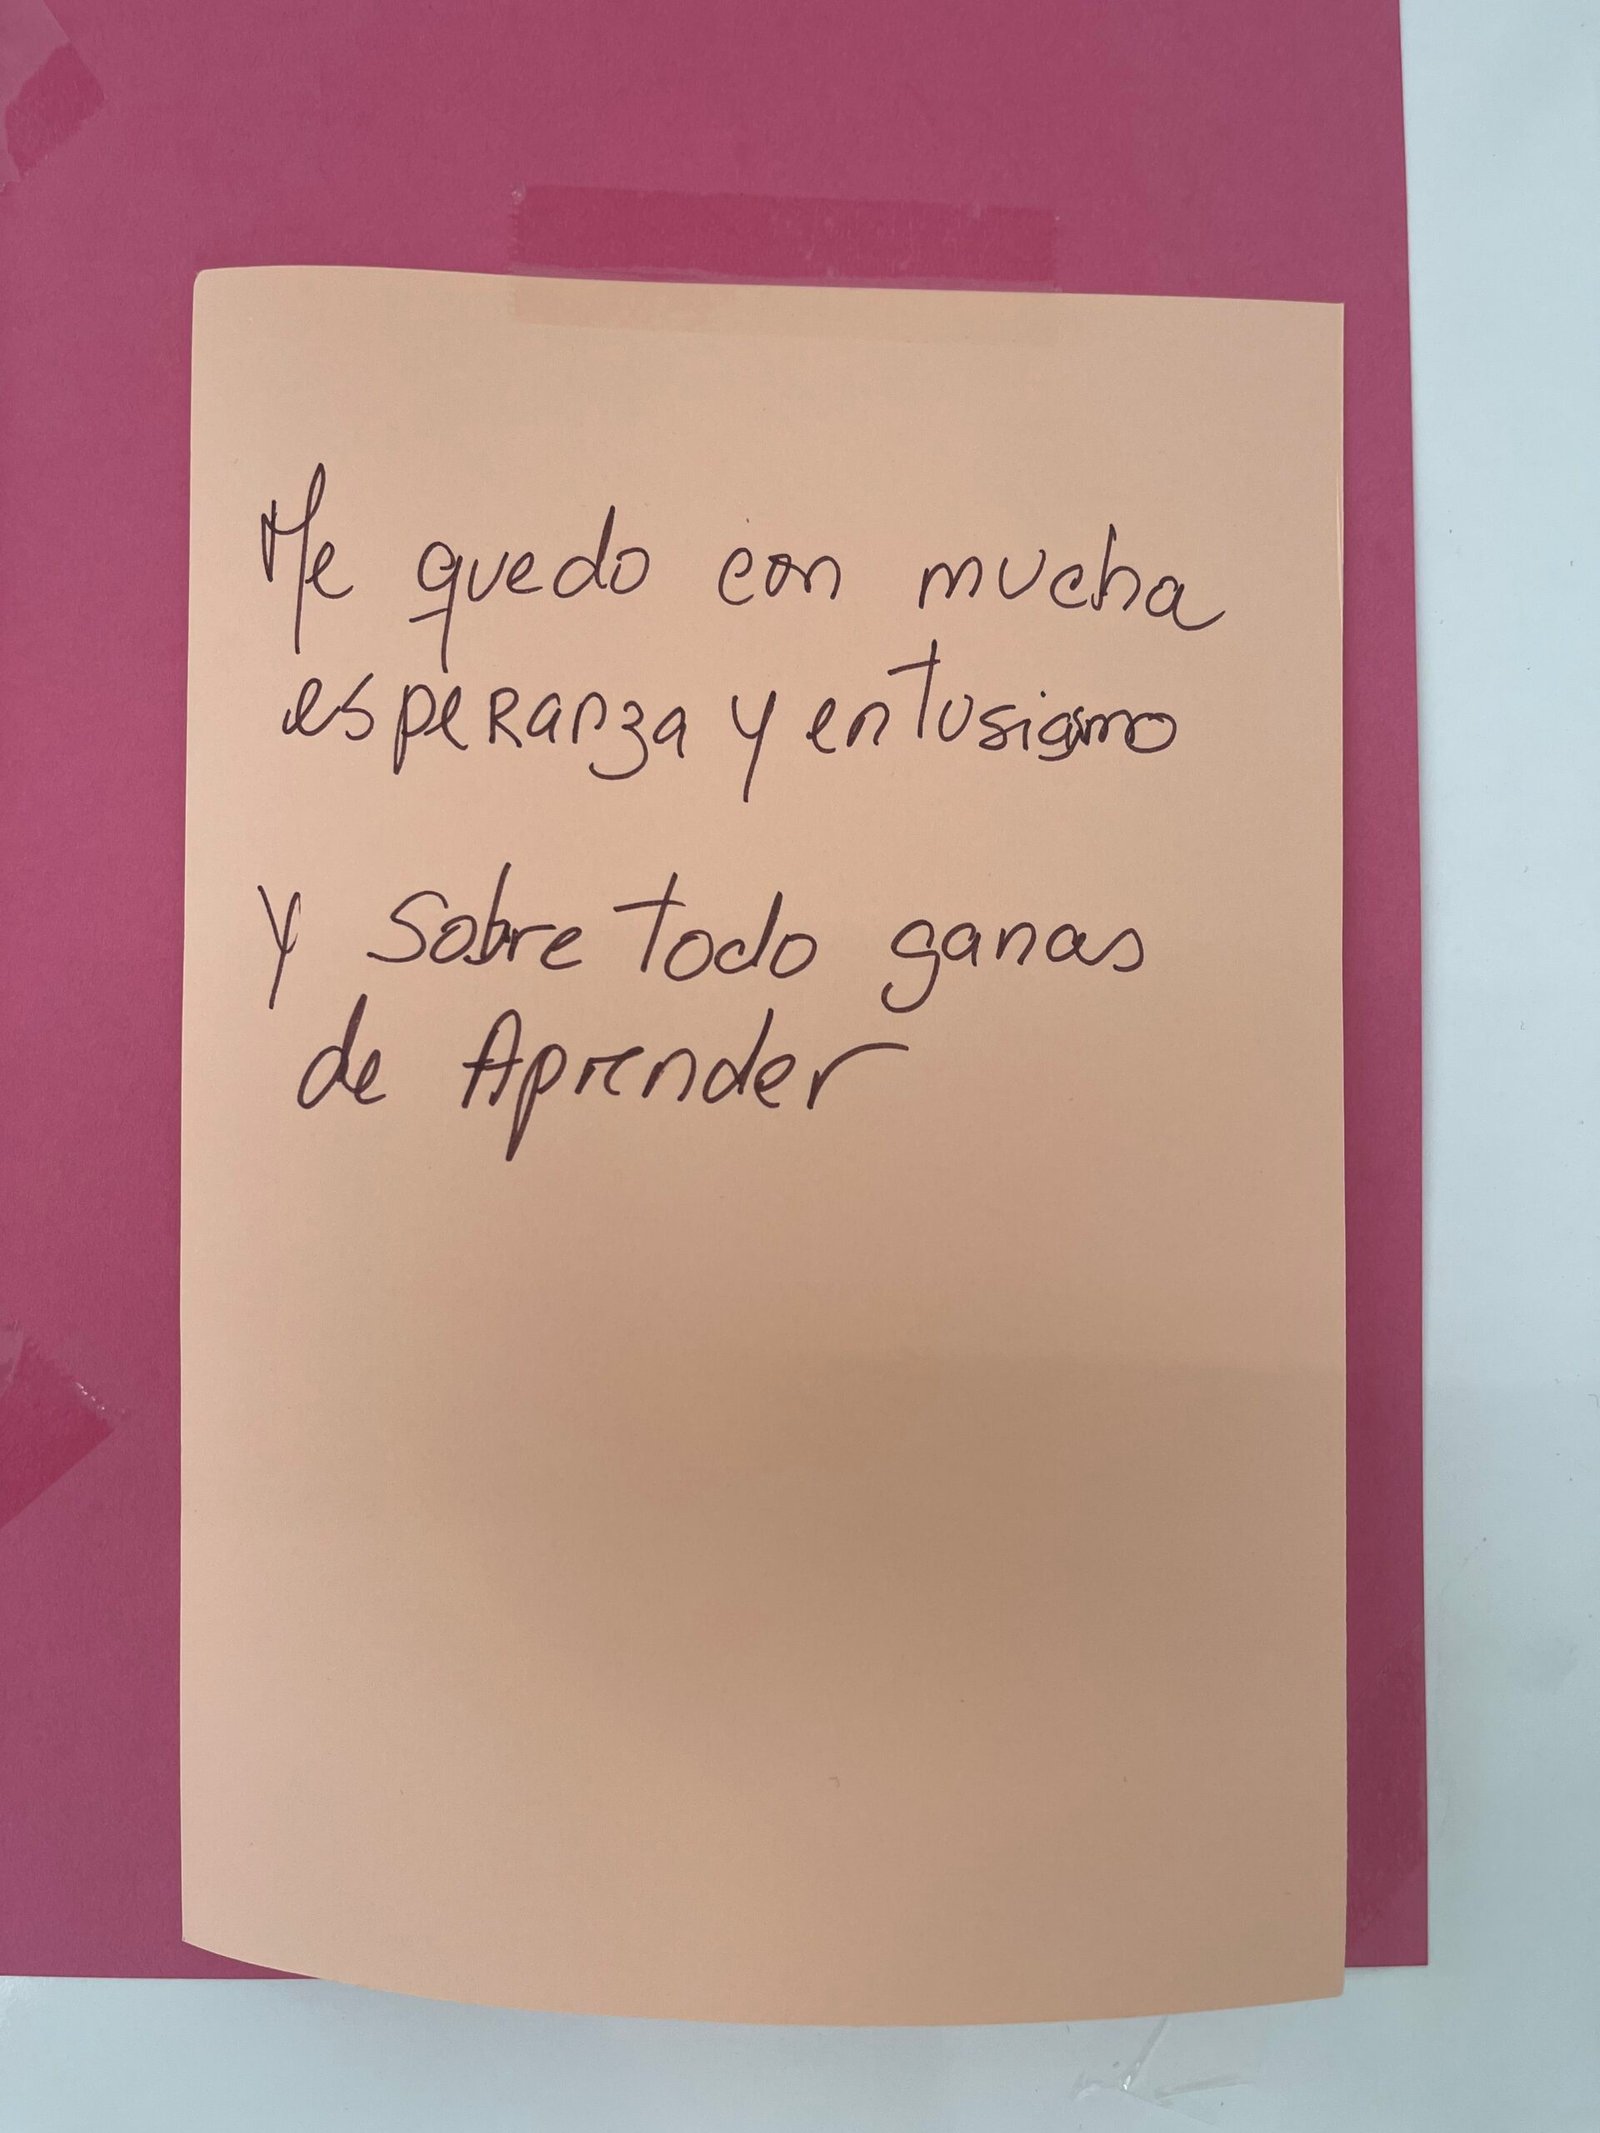 Me quedo con mucha
esperanza y entusiasmo
Y Sobre todo ganas
de Aprender